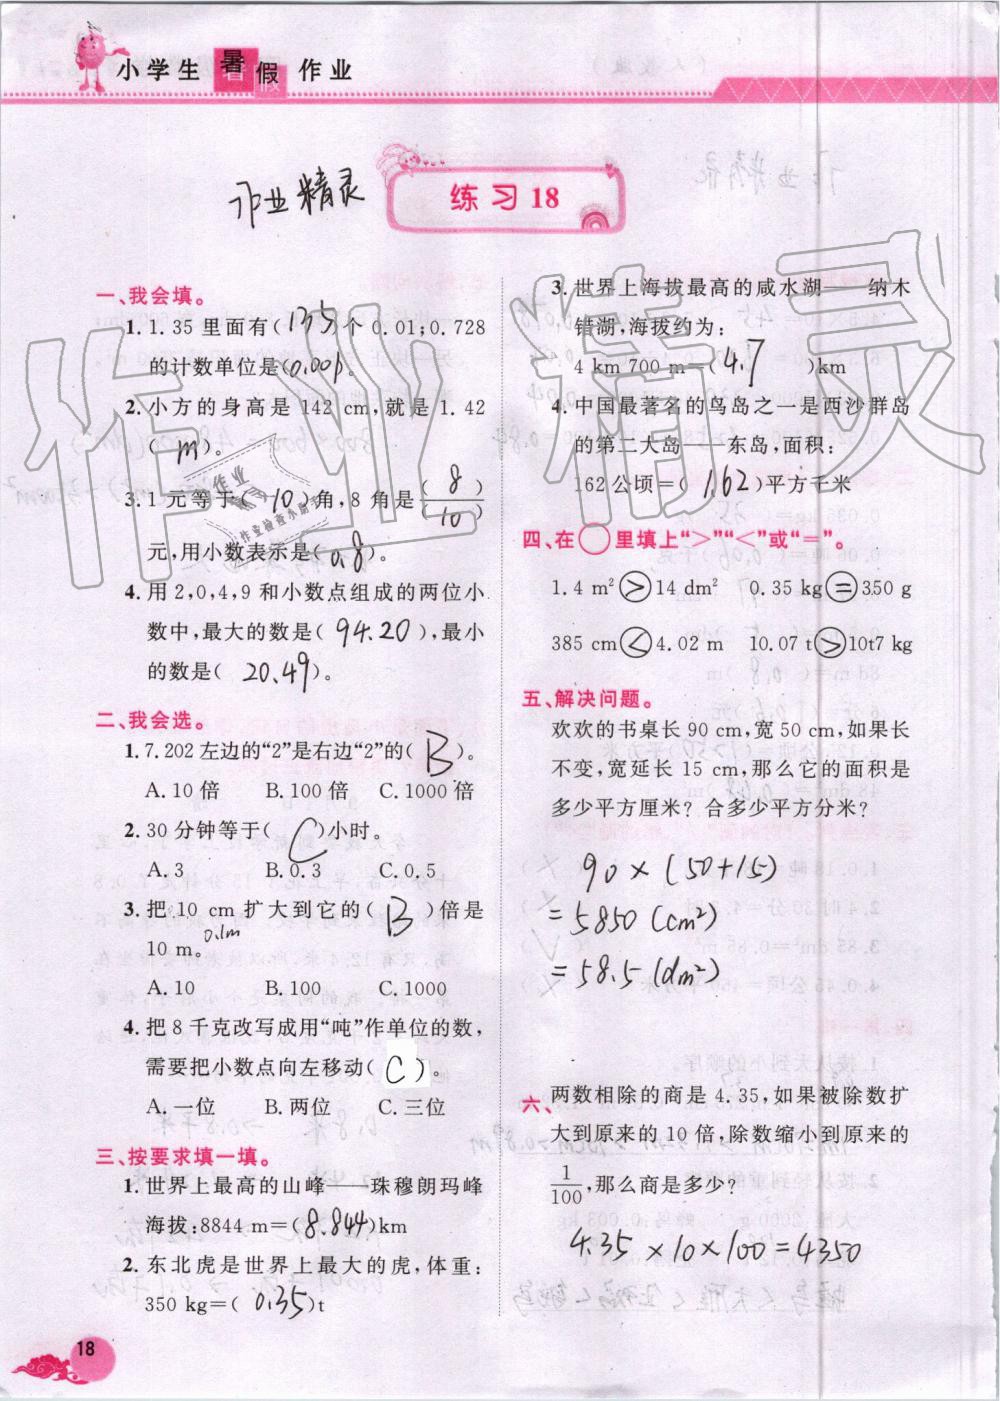 小学生暑假作业
练习18
作业精灵
一、我会填。
1. 1.35里面有(135)个0.01;0.728
的计数单位是(0.001)。
2. 小方的身高是142 cm,就是1.42
(m)。
3. 1元等于(10)角,8角是(8)/(10)
元,用小数表示是(0.8)。
4. 用2,0,4,9和小数点组成的两位小
数中,最大的数是(94.20),最小
的数是(20.49)。
二、我会选。
1. 7.202左边的“2”是右边“2”的(B)。
A. 10倍 B. 100倍 C. 1000倍
2. 30分钟等于(C)小时。
A. 3 B. 0.3 C. 0.5
3. 把10 cm扩大到它的(B)倍是
0.1m
10 m。
A. 10 B. 100 C. 1000
4. 把8千克改写成用“吨”作单位的数,
需要把小数点向左移动(C)。
A. 一位 B. 两位 C. 三位
三、按要求填一填。
1. 世界上最高的山峰——珠穆朗玛峰
海拔:8844 m=(8.844)km
2. 东北虎是世界上最大的虎,体重:
350 kg=(0.35)t
3. 世界上海拔最高的咸水湖——纳木
错湖,海拔约为:
4 km 700 m=(4.7)km
4. 中国最著名的鸟岛之一是西沙群岛
的第二大岛——东岛,面积:
162公顷=(1.62)平方千米
四、在○里填上“>”“<”或“=”。
1.4 m²>14 dm² 0.35 kg=350 g
385 cm<4.02 m 10.07 t>10t7 kg
五、解决问题。
欢欢的书桌长90 cm,宽50 cm,如果长
不变,宽延长15 cm,那么它的面积是
多少平方厘米?合多少平方分米?
90×(50+15)
=5850(cm²)
=58.5(dm²)
六、两数相除的商是4.35,如果被除数扩
大到原来的10倍,除数缩小到原来的
1/100,那么商是多少?
4.35×10×100=4350
18
作业精灵
作业
精灵
作业检查小助手